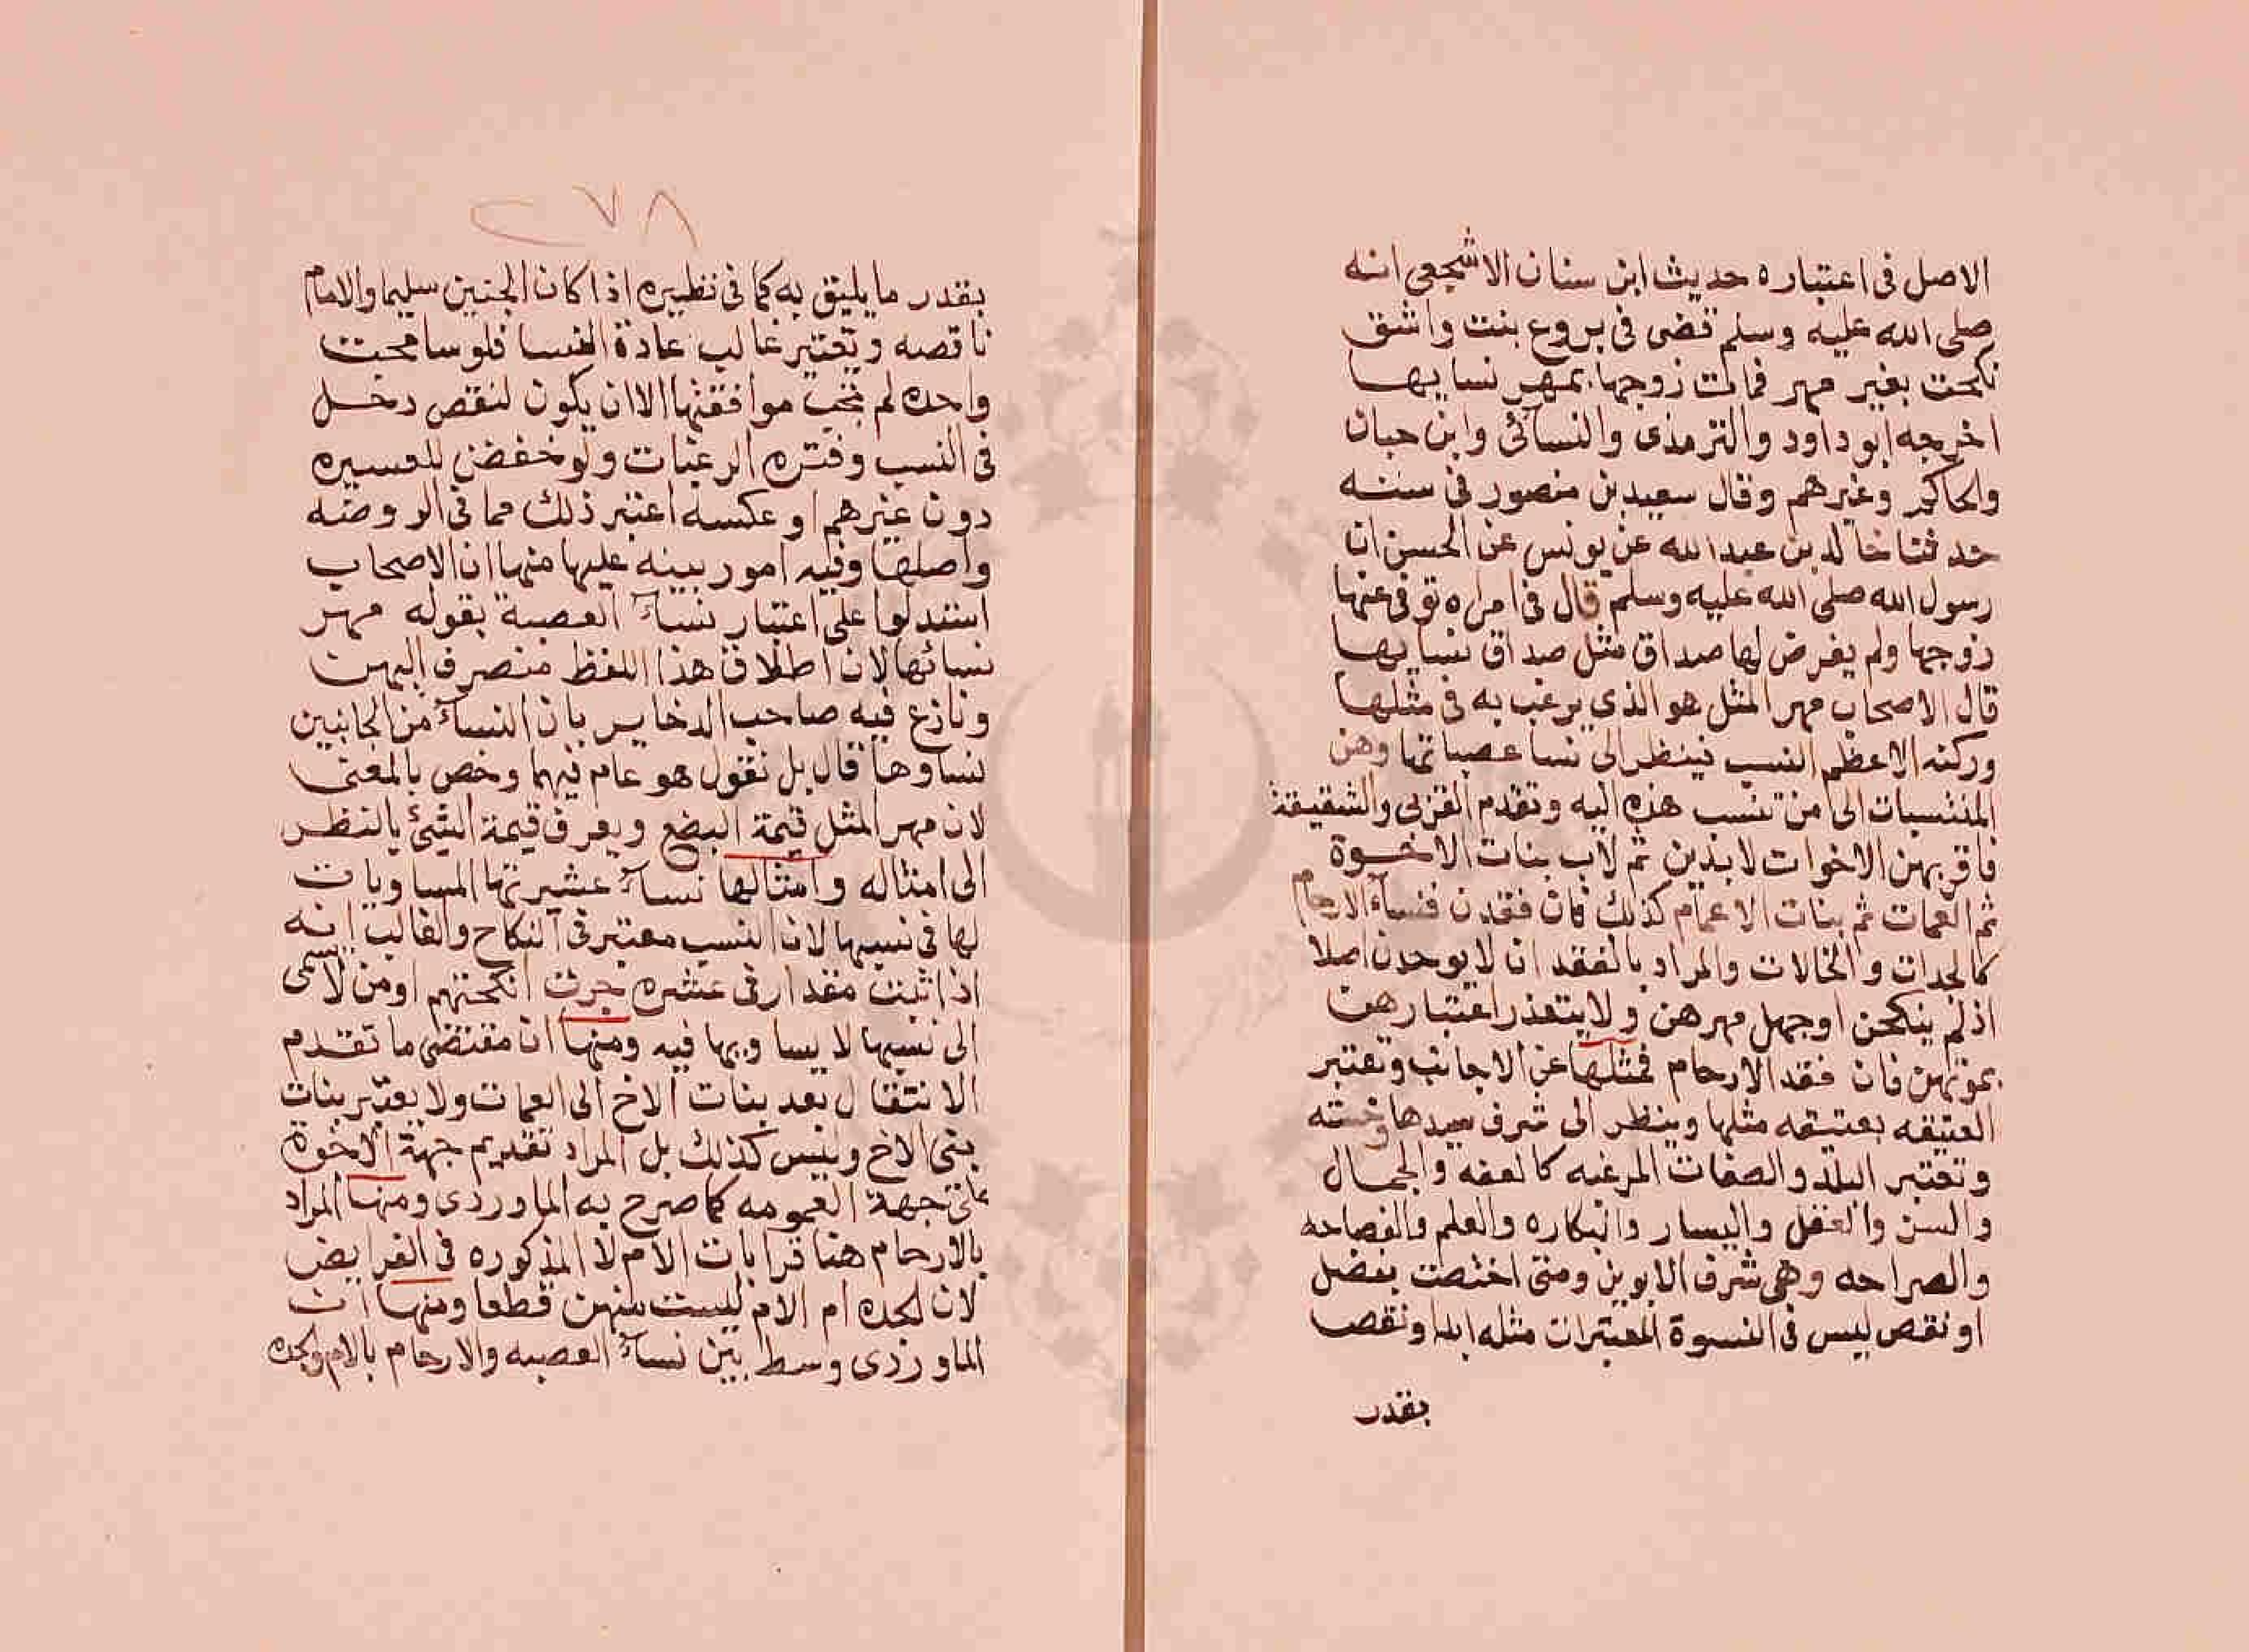 الاصل فى اعتباره حديث ابن سنان الاشجعى انه
صلى الله عليه وسلم قضى فى بروع بنت واشق
نكحت بغير مهر فمات زوجها بمهر نسايها
اخرجه ابو داود والترمذى والنسائى وابن حبان
والحاكم وغيرهم وقال سعيد بن منصور فى سننه
حدثنا خالد بن عبد الله عن يونس عن الحسن ان
رسول الله صلى الله عليه وسلم قال فى امراه توفى عنها
زوجها ولم يفرض لها صداق مثل صداق نسايها
قال الاصحاب مهر المثل هو الذى يرغب به فى مثلها
وركنه الاعظم النسب فينظر الى نسا عصباتها وهن
المنتسبات الى من تنسب هذه اليه وتقدم القربى والشقيقة
فاقربهن الاخوات لابوين ثم لاب بنات الاخوة
ثم العمات ثم بنات الاعمام كذلك فان فقدن فنسآء الارحام
كالجدات والخالات والمراد بالفقد ان لا يوجدن اصلا
اذ لم ينكحن او جهل مهرهن ولا يتعذر اعتبارهن
بموتهن فان فقد الارحام فمثلها من الاجانب وتعتبر
العتيقه بعتيقه مثلها وينظر الى شرف سيدها وخسته
وتعتبر البلد والصفات المرغبه كالعفه والجمال
والسن والعقل واليسار والبكاره والعلم والفصاحه
والصراحه وهى شرف الابوين ومتى اختصت بفضل
او نقص ليس فى النسوة المعتبرات مثله ونقص
بقدر
٢٧٨
بقدر ما يليق به كما فى نظيره اذا كان الجنين سليما والام
ناقصه وتعتبر غالب عادة النسا فلو سامحت
واحده لم تجب موافقتها الا ان يكون لنقص دخل
فى النسب وفتره الرغبات ولو خفضن للعسيره
دون غيرهم او عكسه اعتبر ذلك مما فى الروضه
واصلها وفيه امور ببينه عليها منها ان الاصحاب
استدلوا على اعتبار نسآء العصبة بقوله مهر
نسائها لان اطلاق هذا اللفظ منصرف اليهن
ونازع فيه صاحب الدخاير بان النسآء من الجانبين
نساوها قال بل نقول هو عام فيهما وخص بالمعنى
لان مهر المثل قيمة البضع ويعرف قيمة الشئ بالنظر
الى امثاله وامثالها نسآء عشيرتها المساويات
لها فى نسبها لان النسب معتبر فى النكاح والغالب انه
اذا ثبت مقدار فى عشيره جرت انكحتهم اومن لا يسمى
الى نسبها لا يساويها فيه ومنها ان مقتضى ما تقدم
الانتقال بعد بنات الاخ الى العمات ولا يعتبر بنات
بنى الاخ وليس كذلك بل المراد تقديم جهة الاخوة
على جهة العمومه كما صرح به الماوردى ومنها المراد
بالارحام هنا قرابات الام لا المذكوره فى الفرايض
لان الجده ام الام ليست منهن قطعا ومنها ان
الماوردى وسط بين نسآء العصبه والارحام بالام والجده